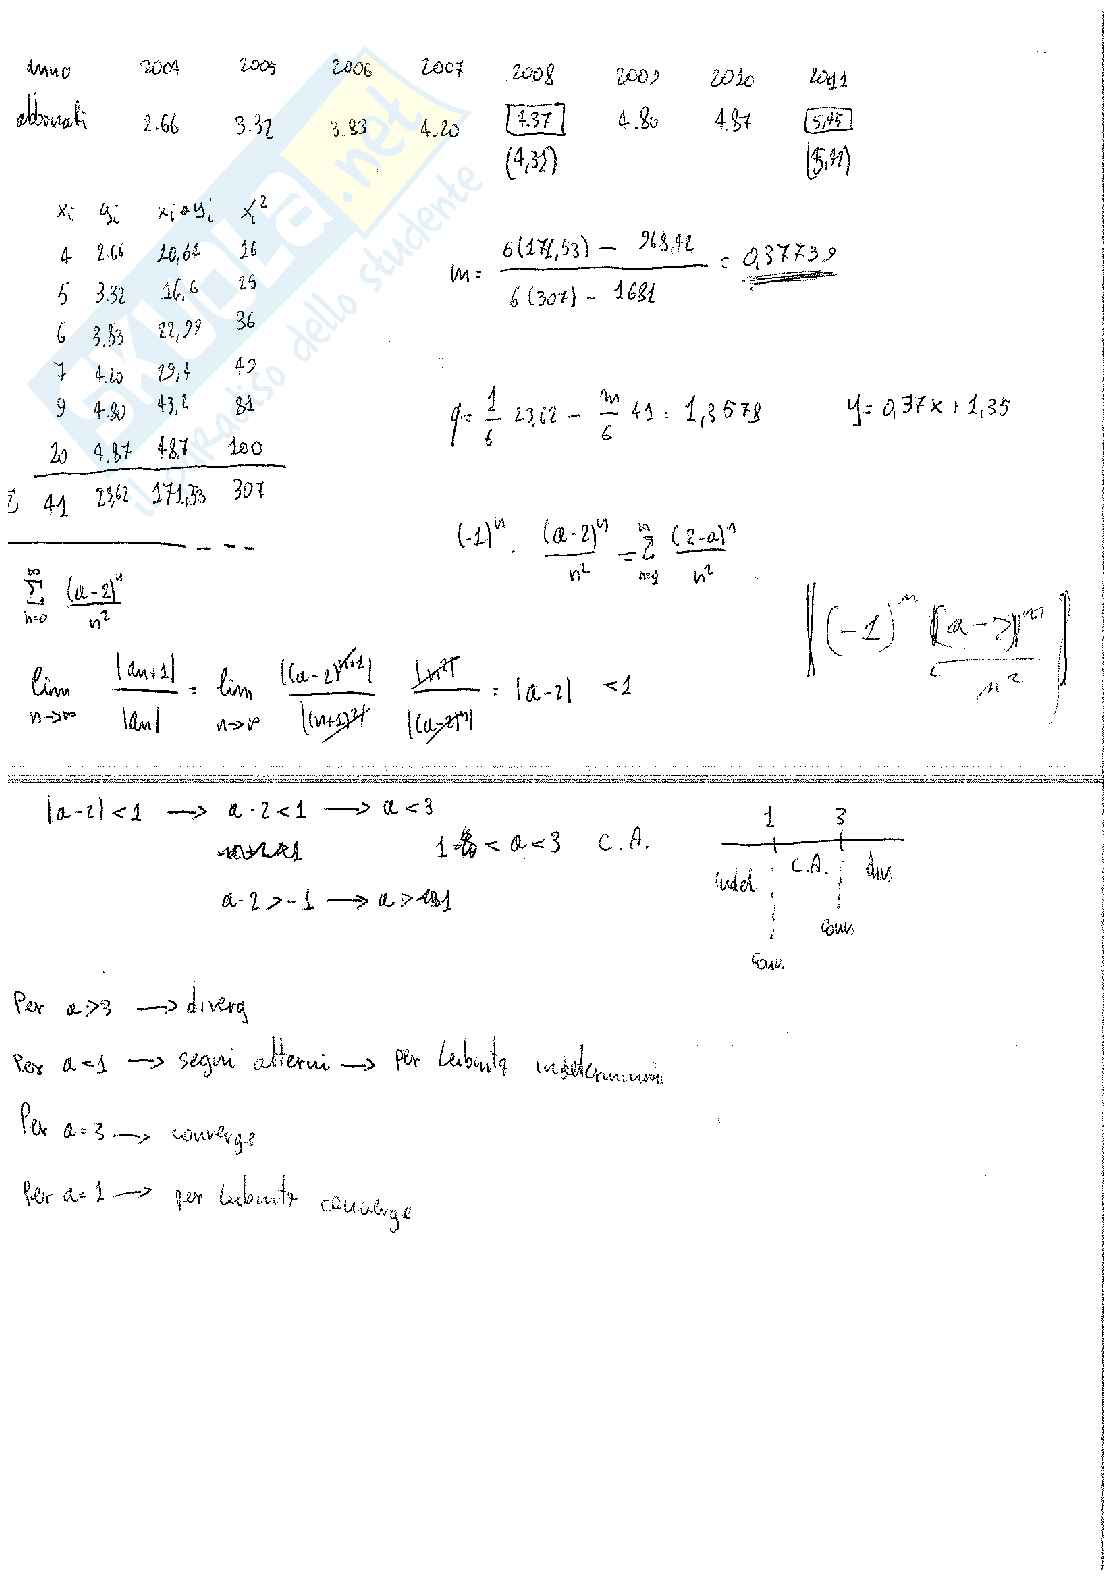 anno 2004 2005 2006 2007 2008 2009 2010 2011
abbonati 2.66 3.32 3.83 4.20 4.37 4.80 4.87 5,45
(4,31)
xi yi xi·yi xi²
4 2.66 10,62 16
5 3.32 16,6 25
6 3.83 22,98 36
7 4.20 29,4 49
9 4.80 43,2 81
10 4.87 48,7 100
Σ 41 23,62 171,53 307
m = (6(171,53) - 968,42) / (6(307) - 1681) = 0,37739
q = 1/6 23,62 - m/6 41 = 1,3578 y = 0,37x + 1,35
(-1)^n · (a-2)^n / n² = Σ (2-a)^n / n²
Σ n=0 ∞ (a-2)^n / n²
(-1)^n (a-2)^n / n²
lim n→∞ |an+1| / |an| = lim n→∞ |(a-2)^n+1| / |(n+1)²| |n²| / |(a-2)^n| = |a-2| < 1
|a-2| < 1 → a-2 < 1 → a < 3
1 < a < 3 C.A.
a-2 > -1 → a > 1
1 3
indet C.A. div
conv.
conv.
Per a>3 → diverg
Per a<1 → segni alterni → per Leibnitz
Per a=3 → converge
Per a=1 → per Leibnitz converge
SKUOLA.net
il paradiso dello studente